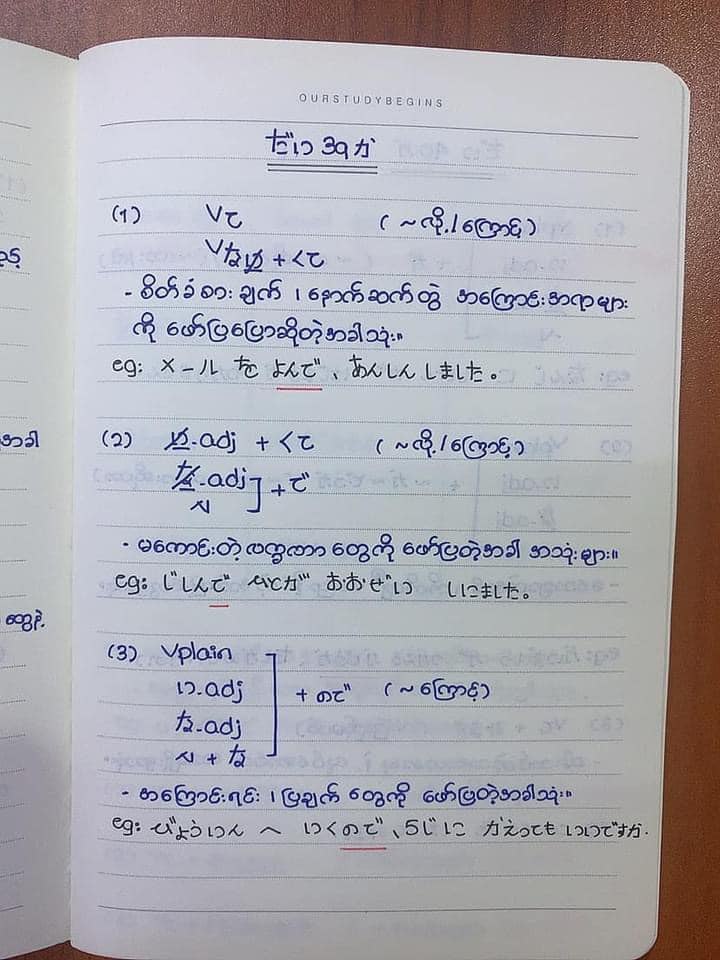 OURSTUDYBEGINS
だい 39 か
(1) Vて (~လို့/ကြောင့်)
Vない + くて
- စိတ်ခံစားချက် ၊ နောက်ဆက်တွဲ အကြောင်းအရာများ
ကို ဖော်ပြပြောဆိုတဲ့အခါသုံး။
eg: メール を よんで、あんしん しました。
(2) い.adj + くて (~လို့/ကြောင့်)
な.adj + で
N
- မကောင်းတဲ့လက္ခဏာ တွေကို ဖော်ပြတဲ့အခါ အသုံးများ။
eg: じしんで ひとが おおぜい しにました。
(3) Vplain
い.adj + ので (~ကြောင့်)
な.adj
N + な
- အကြောင်းရင်း ၊ ပြချက် တွေကို ဖော်ပြတဲ့အခါသုံး။
eg: びょういん へ いくので、5じに かえっても いいですか.
ည့်
အခါ
တွေနဲ့